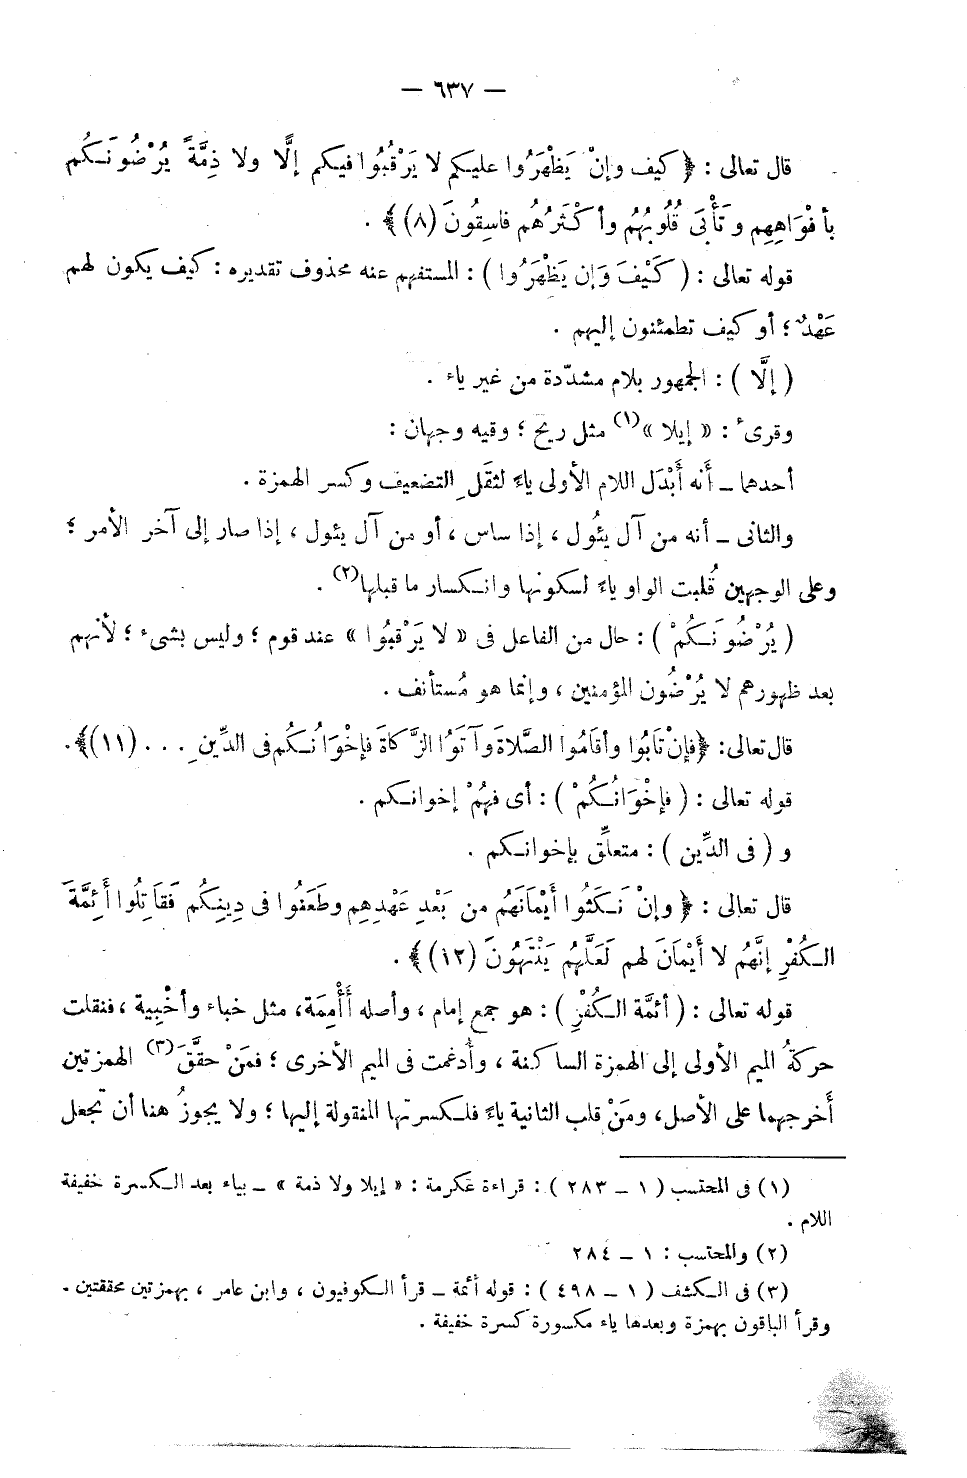 — ٦٣٧ —
قال تعالى : ﴿ كيف وإنْ يَظْهَرُوا عليكم لا يَرْقُبُوا فيكم إلًّا ولا ذِمَّةً يُرْضُونَـكُم
بأفْوَاهِهِم وتَأْبَى قُلُوبُهُم وأكْثَرُهُم فاسِقُونَ (٨) ﴾ .
قوله تعالى : ( كَيْفَ وَإن يَظْهَرُوا ) : المستفهم عنه محذوف تقديره : كيف يكون لهم
عَهْدٌ ؛ أو كيف تطمئنون إليهم .
( إلَّا ) : الجمهور بلام مشدّدة من غير ياء .
وقرىء : « إيلا »(١) مثل ريح ؛ وفيه وجهان :
أحدها ــ أنه أَبْدَل اللام الأولى ياءً لثقَلِ التضعيف وكسر الهمزة .
والثانى ــ أنه من آل يئُول ، إذا ساس ، أو من آل يئول ، إذا صار إلى آخر الأمر ؛
وعلى الوجهين قُلبت الواو ياءً لسكونها وانـكسار ما قبلها(٢) .
( يُرْضُونَـكُمْ ) : حال من الفاعل فى « لا يَرْقبُوا » عند قوم ؛ وليس بشىء ؛ لأنهم
بعد ظهورهم لا يُرْضُون المؤمنين ، وإنما هو مُستأنف .
قال تعالى : ﴿فإنْ تَابُوا وأقَامُوا الصَّلاةَ وآتَوُا الزَّكاةَ فإخْوَانُـكُم فى الدِّينِ . . . (١١)﴾.
قوله تعالى : ( فإخْوَانُـكُمْ ) : أى فهُمْ إخوانـكم .
و ( فى الدِّين ) : متعلِّق بإخوانـكم .
قال تعالى : ﴿ وإنْ نَـكَثُوا أيْمَانَهُم من بَعْدِ عَهْدِهِم وطَعَنُوا فى دِينِكُم فَقَاتِلُوا أئِمَّةَ
الـكُفْرِ إنَّهُم لا أيْمَانَ لهم لَعَلَّهُم يَنْتَهُونَ (١٢) ﴾ .
قوله تعالى : ( أئمَّة الـكُفْرِ ) : هو جمع إمام ، وأصله أَأْمِمَة، مثل خباء وأخْبِية ، فنقلت
حركةُ الميم الأولى إلى الهمزة الساكنة ، وأُدغمت فى الميم الأخرى ؛ فمَنْ حقَّقَ(٣) الهمزتين
أخرجهما على الأصل، ومَنْ قلب الثانية ياءً فلـكسرتها المنقولة إليها ؛ ولا يجوزُ هنا أن تجعل
(١) فى المحتسب ( ١ ــ ٢٨٣ ) : قراءة عكرمة : « إيلا ولا ذمة » ــ بياء بعد الـكسرة خفيفة
اللام .
(٢) والمحتسب : ١ ــ ٢٨٤
(٣) فى الـكشف ( ١ ــ ٤٩٨ ) : قوله أئمة ــ قرأ الـكوفيون ، وابن عامر ، بهمزتين محققتين .
وقرأ الباقون بهمزة وبعدها ياء مكسورة كسرة خفيفة .